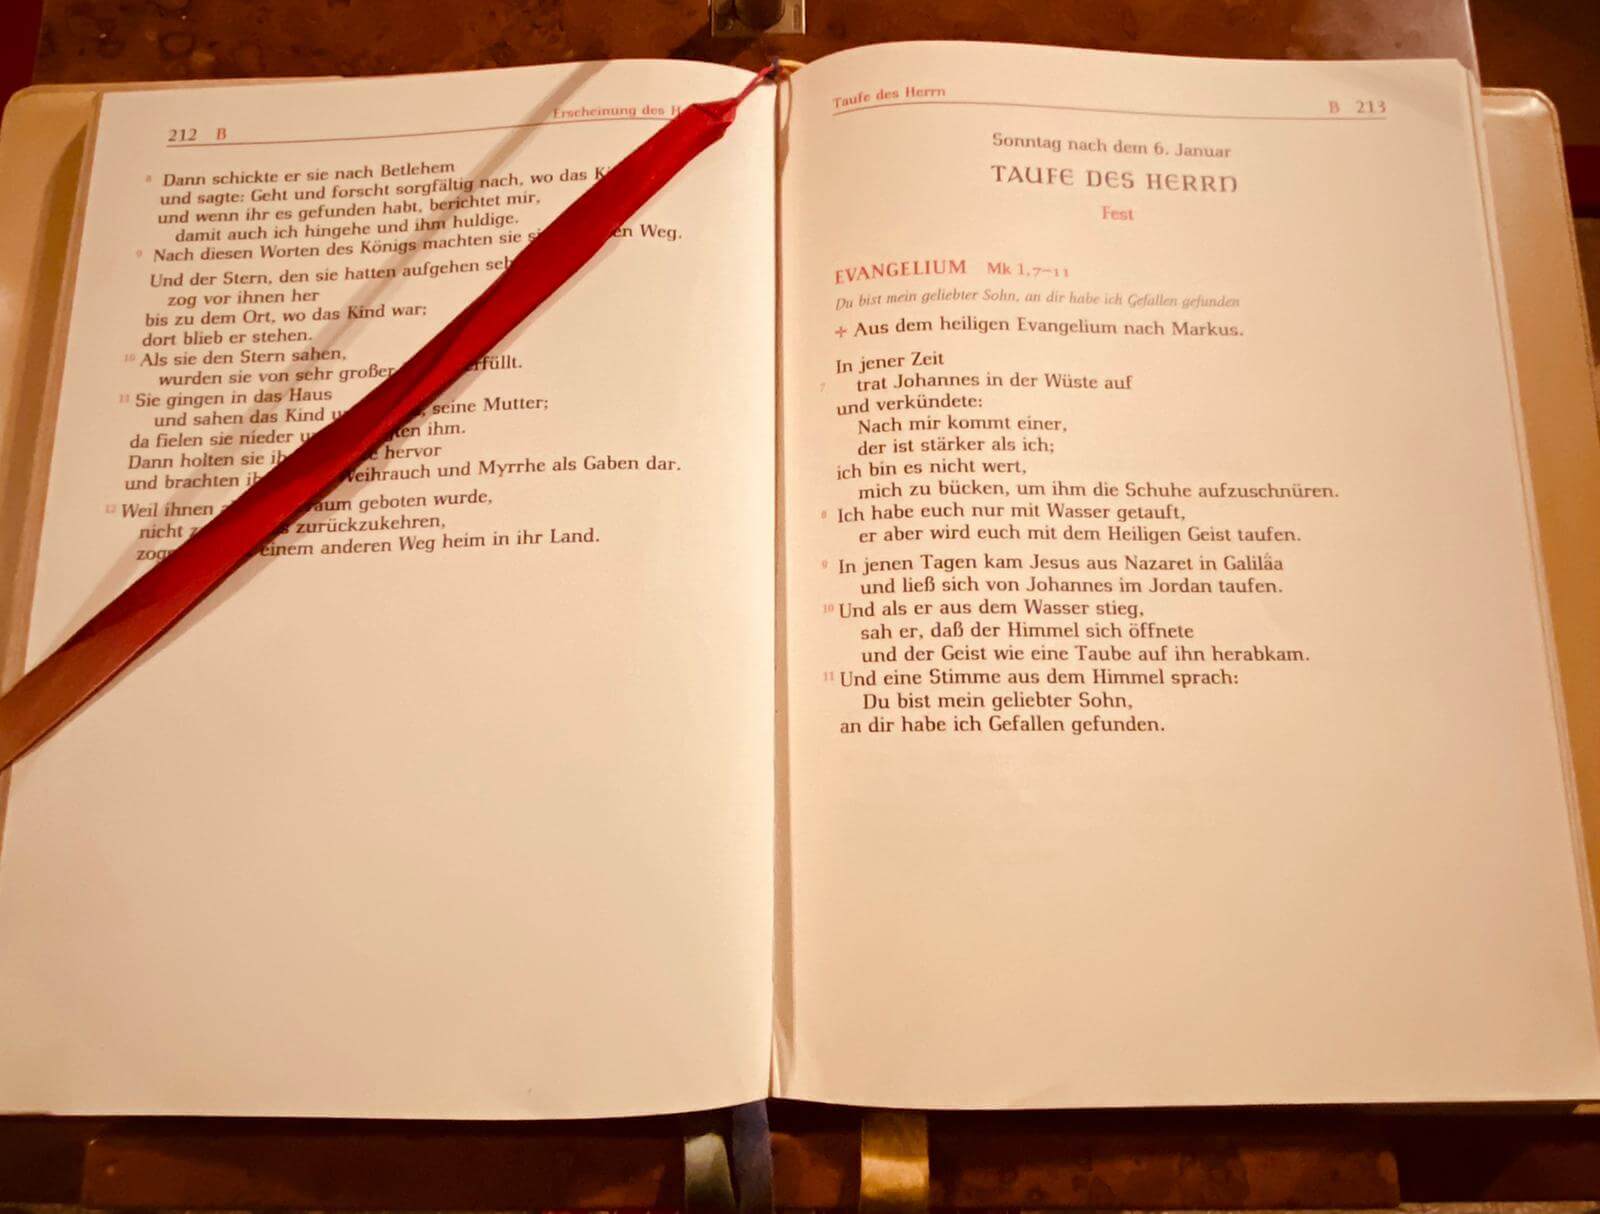 212 B
Erscheinung des
8 Dann schickte er sie nach Betlehem
und sagte: Geht und forscht sorgfältig nach, wo das
und wenn ihr es gefunden habt, berichtet mir,
damit auch ich hingehe und ihm huldige.
9 Nach diesen Worten des Königs machten sie Weg.
Und der Stern, den sie hatten aufgehen
zog vor ihnen her
bis zu dem Ort, wo das Kind war;
dort blieb er stehen.
10 Als sie den Stern sahen,
wurden sie von sehr großer erfüllt.
11 Sie gingen in das Haus
und sahen das Kind seine Mutter;
da fielen sie nieder ihm.
Dann holten sie hervor
und brachten Weihrauch und Myrrhe als Gaben dar.
12 Weil ihnen geboten wurde,
nicht zurückzukehren,
einem anderen Weg heim in ihr Land.
Taufe des Herrn
B 213
Sonntag nach dem 6. Januar
TAUFE DES HERRN
Fest
EVANGELIUM Mk 1,7–11
Du bist mein geliebter Sohn, an dir habe ich Gefallen gefunden
+ Aus dem heiligen Evangelium nach Markus.
In jener Zeit
7 trat Johannes in der Wüste auf
und verkündete:
Nach mir kommt einer,
der ist stärker als ich;
ich bin es nicht wert,
mich zu bücken, um ihm die Schuhe aufzuschnüren.
8 Ich habe euch nur mit Wasser getauft,
er aber wird euch mit dem Heiligen Geist taufen.
9 In jenen Tagen kam Jesus aus Nazaret in Galiläa
und ließ sich von Johannes im Jordan taufen.
10 Und als er aus dem Wasser stieg,
sah er, daß der Himmel sich öffnete
und der Geist wie eine Taube auf ihn herabkam.
11 Und eine Stimme aus dem Himmel sprach:
Du bist mein geliebter Sohn,
an dir habe ich Gefallen gefunden.